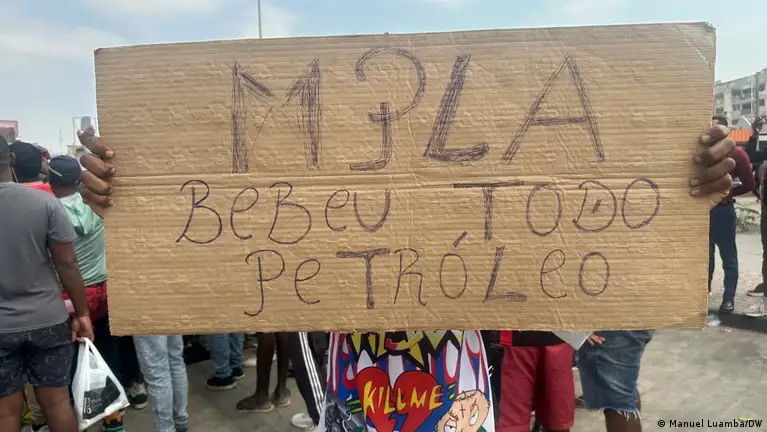 MPLA
BEBEU TODO
PETRÓLEO
KILL ME
© Manuel Luamba/DW